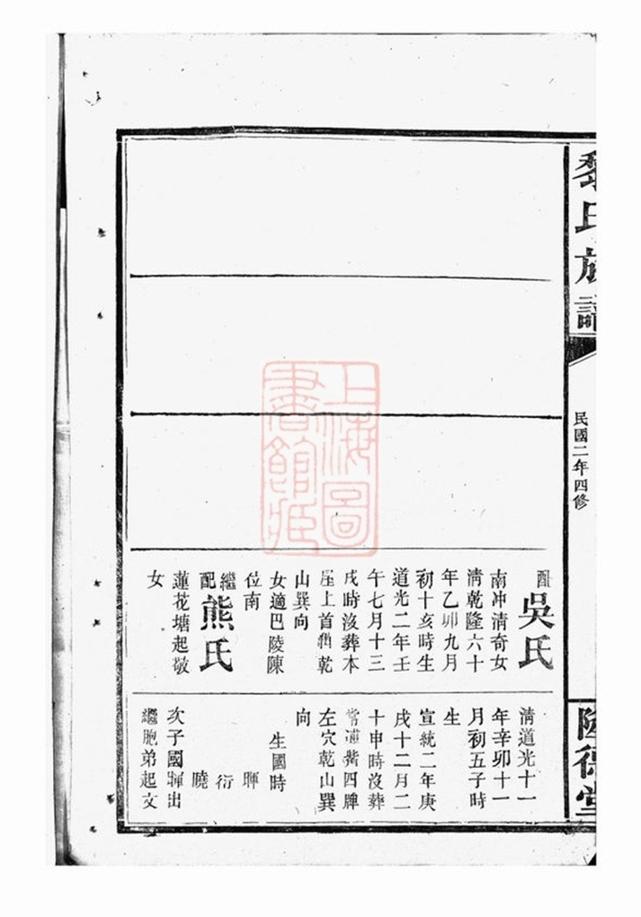 黎氏族譜
民國二年四修
隆德堂
配吳氏
南冲清奇女
清乾隆六十
年乙卯九月
初十亥時生
道光二年壬
午七月十三
戌時沒葬本
屋上首乾
山巽向
女適巴陵陳
位南
繼配熊氏
蓮花塘起敬
女
清道光十一
年辛卯十一
月初五子時
生
宣統二年庚
戌十二月二
十申時沒葬
嘴四牌
左穴乾山巽
向
生國時
暉
衍
曉
次子國暉出
繼胞弟起文
上海圖
書館藏